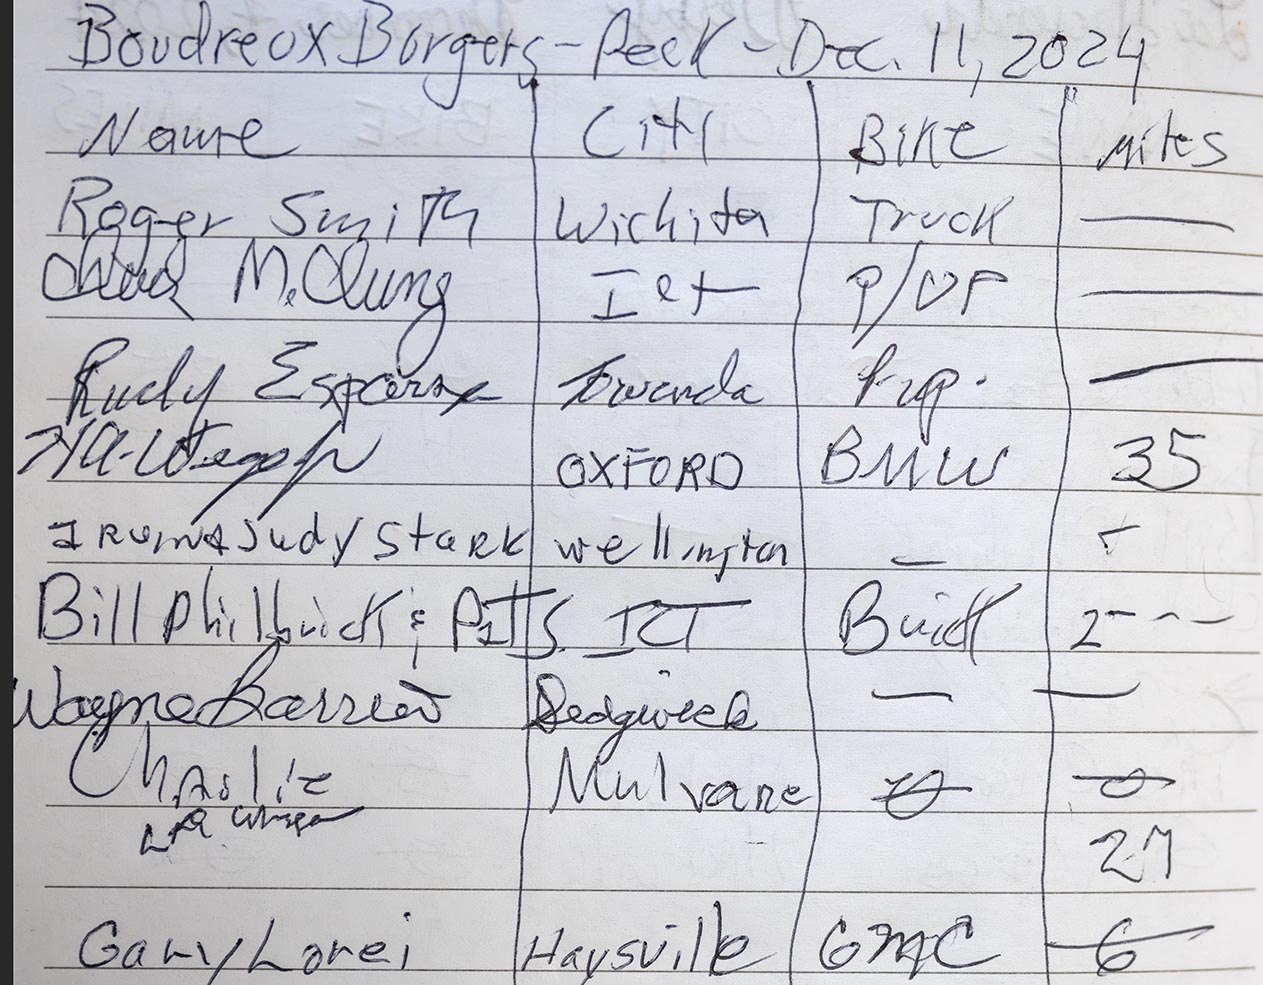 Boudreox Borgers - Peck - Dec. 11, 2024
Name City Bike Miles
Roger Smith Wichita Truck —
Chuck McClung Ict P/UP —
Rudy Esparza Towanda P.up. —
OXFORD BMW 35
IRvin & Judy Stark wellington —
Bill Philbrick & Pitts ICT Buick 2---
Wayne Sedgwick — —
Charlie Mulvane
27
Gary Lorei Haysville GMC 6